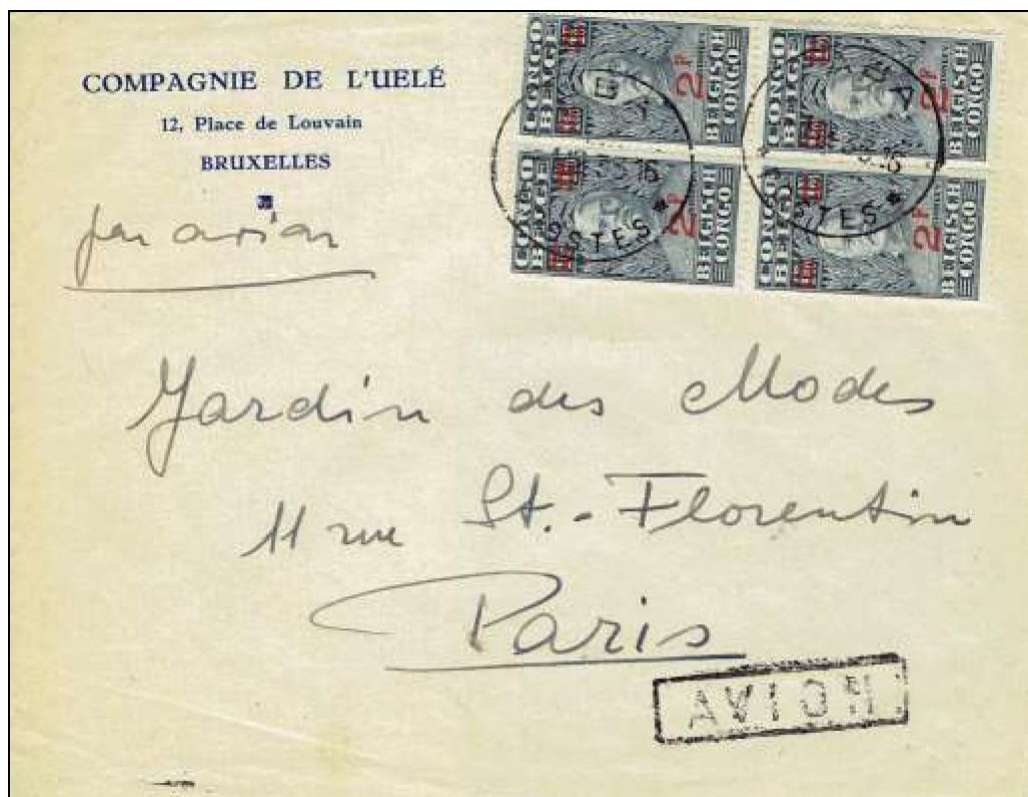 COMPAGNIE DE L'UELÉ
12, Place de Louvain
BRUXELLES
par avion
CONGO BELGE
2 F
BELGISCH CONGO
CONGO BELGE
2 F
BELGISCH CONGO
CONGO BELGE
2 F
BELGISCH CONGO
CONGO BELGE
2 F
BELGISCH CONGO
Jardin des Modes
11 rue St.-Florentin
Paris
AVION